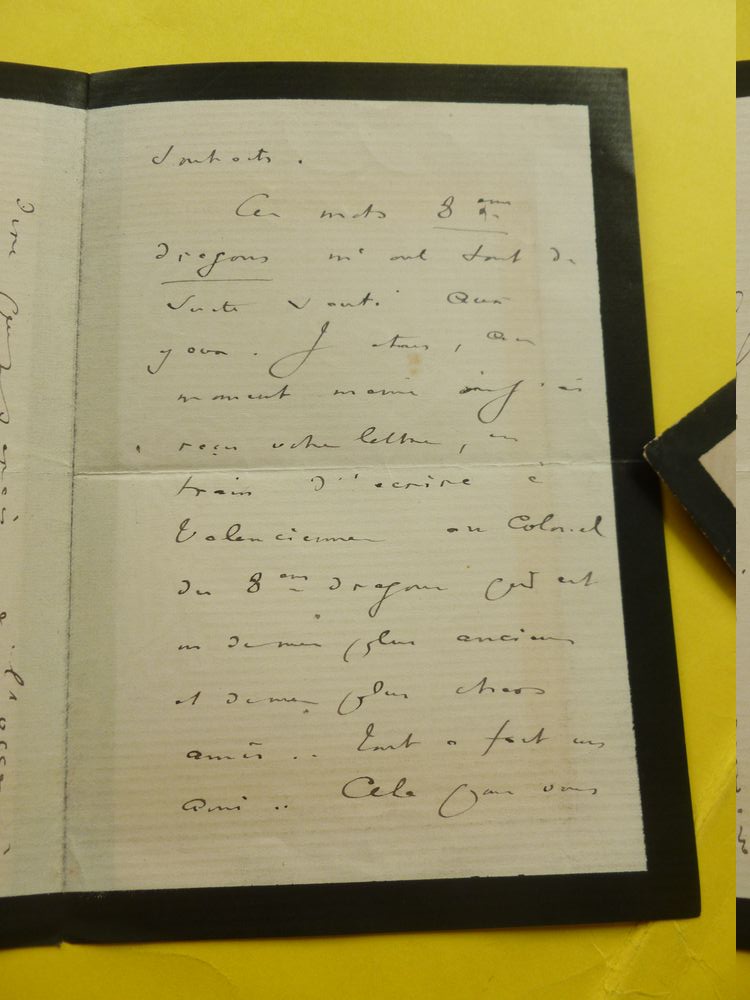 souhaits.
Ces mots 8ème
dragons m'ont tout de
suite sauté aux
yeux. J'étais, au
moment même où j'ai
reçu votre lettre, en
train d'écrire à
Valenciennes au Colonel
du 8ème dragons qui est
un de mes plus anciens
et de mes plus chers
amis.. Tout à fait un
ami.. Cela pour vous